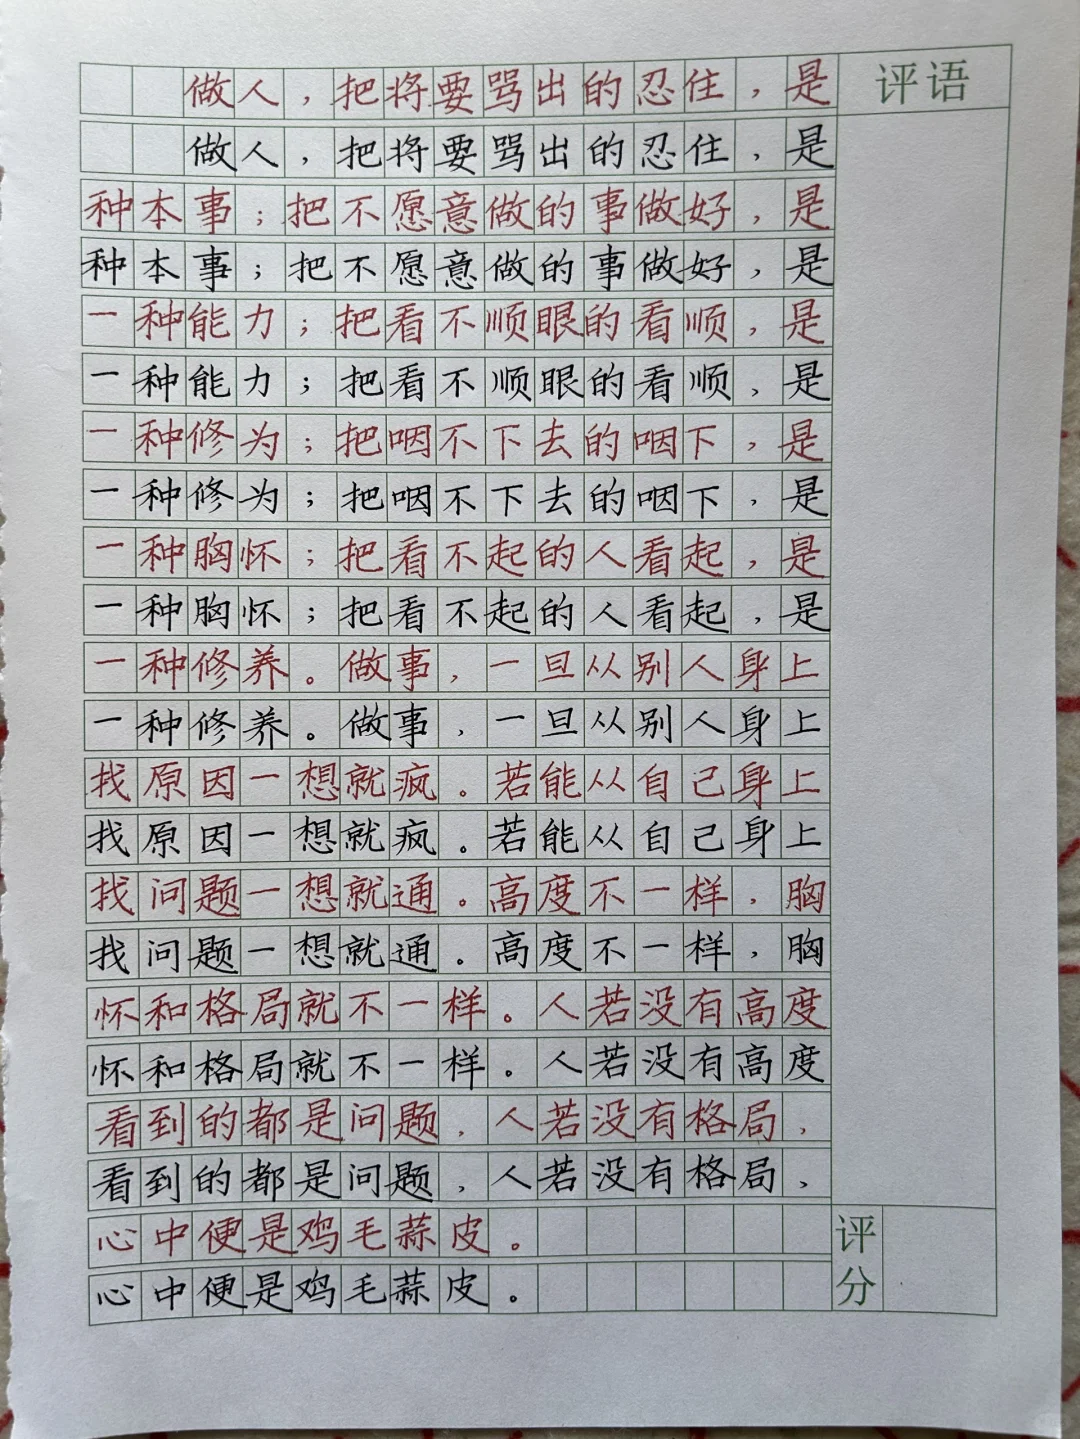 做人，把将要骂出的忍住，是
做人，把将要骂出的忍住，是
种本事；把不愿意做的事做好，是
种本事；把不愿意做的事做好，是
一种能力；把看不顺眼的看顺，是
一种能力；把看不顺眼的看顺，是
一种修为；把咽不下去的咽下，是
一种修为；把咽不下去的咽下，是
一种胸怀；把看不起的人看起，是
一种胸怀；把看不起的人看起，是
一种修养。做事，一旦从别人身上
一种修养。做事，一旦从别人身上
找原因一想就疯。若能从自己身上
找原因一想就疯。若能从自己身上
找问题一想就通。高度不一样，胸
找问题一想就通。高度不一样，胸
怀和格局就不一样。人若没有高度
怀和格局就不一样。人若没有高度
看到的都是问题，人若没有格局，
看到的都是问题，人若没有格局，
心中便是鸡毛蒜皮。
心中便是鸡毛蒜皮。
评语
评
分